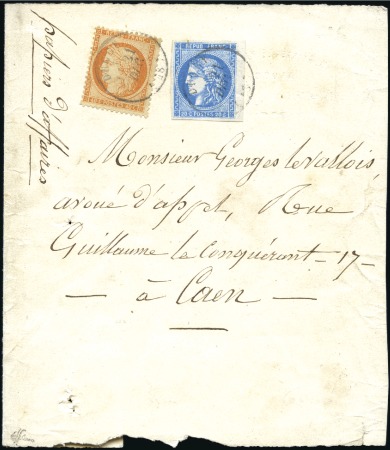 papiers d'affaires
REPUB. FRANC.
Monsieur Georges Levallois,
avoué d'appel, Rue
Guillaume le Conquérant - 17 -
- à Caen -